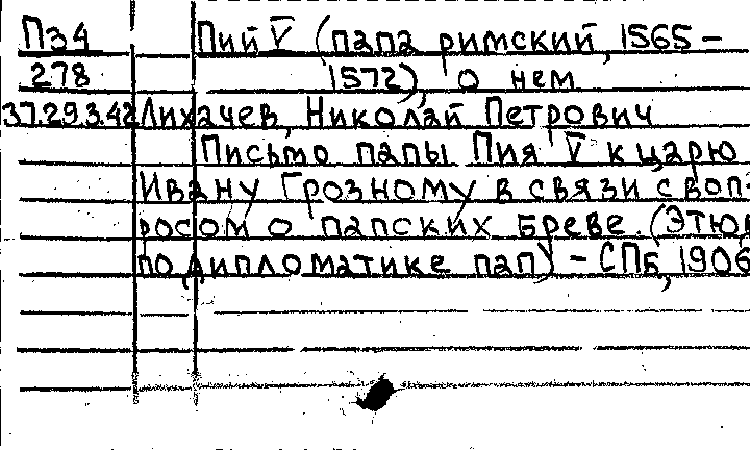 П34 Пий V (папа римский, 1565-
278 1572), о нем
37.29.3.42 Лихачев, Николай Петрович
Письмо папы Пия V к царю
Ивану Грозному в связи с воп-
росом о папских бреве. (Этюд
по дипломатике пап) - СПб, 1906